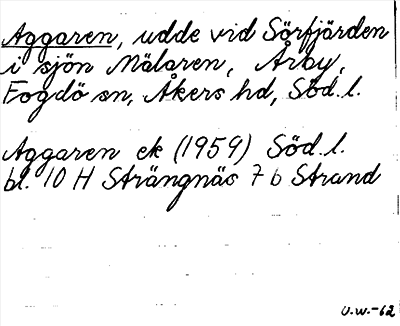 Aggaren, udde vid Sörfjärden
i sjön Mälaren, Årby,
Fogdö sn, Åkers hd, Söd. l.
Aggaren ek (1959) Söd. l.
bl. 10 H Strängnäs 7 b Strand
U.W.-62